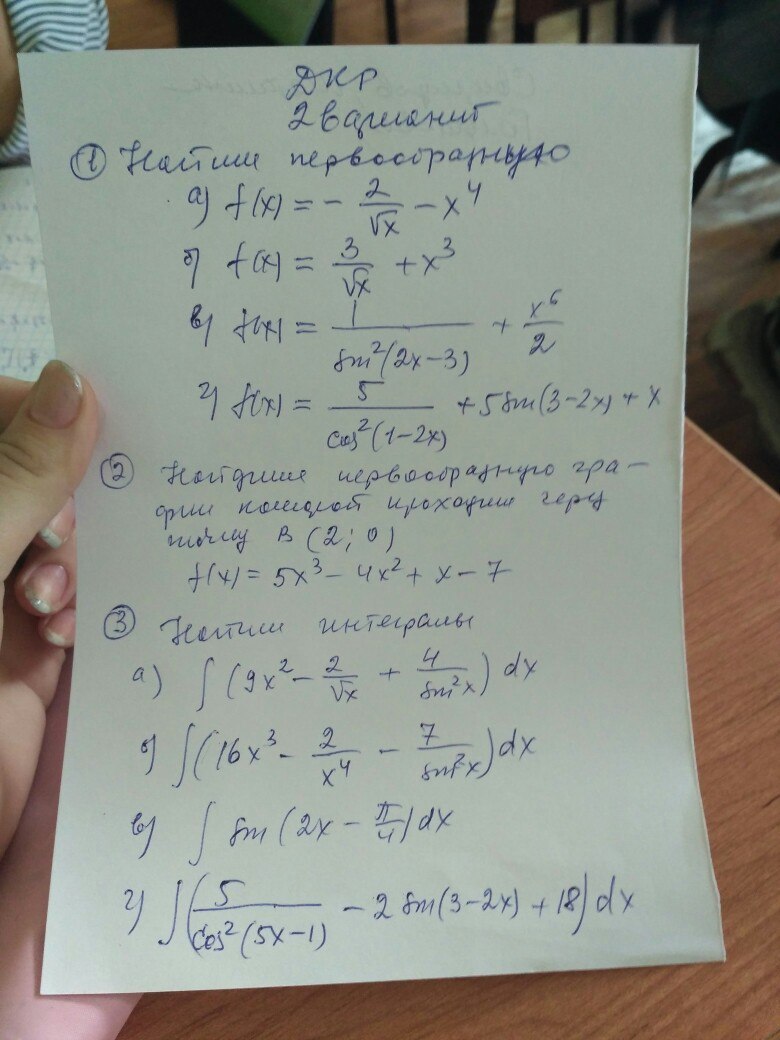 ДКР
2 вариант
① Найти первообразную
а) f(x) = - 2/√x - x⁴
б) f(x) = 3/√x + x³
в) f(x) = 1/sin²(2x-3) + x⁶/2
г) f(x) = 5/cos²(1-2x) + 5 sin(3-2x) + x
② Найдите первообразную гра-
фик которой проходит через
точку В (2; 0)
f(x) = 5x³ - 4x² + x - 7
③ Найти интегралы
а) ∫(9x² - 2/√x + 4/sin²x) dx
б) ∫(16x³ - 2/x⁴ - 7/sin²x) dx
в) ∫ sin(2x - π/4) dx
г) ∫(5/cos²(5x-1) - 2 sin(3-2x) + 18) dx